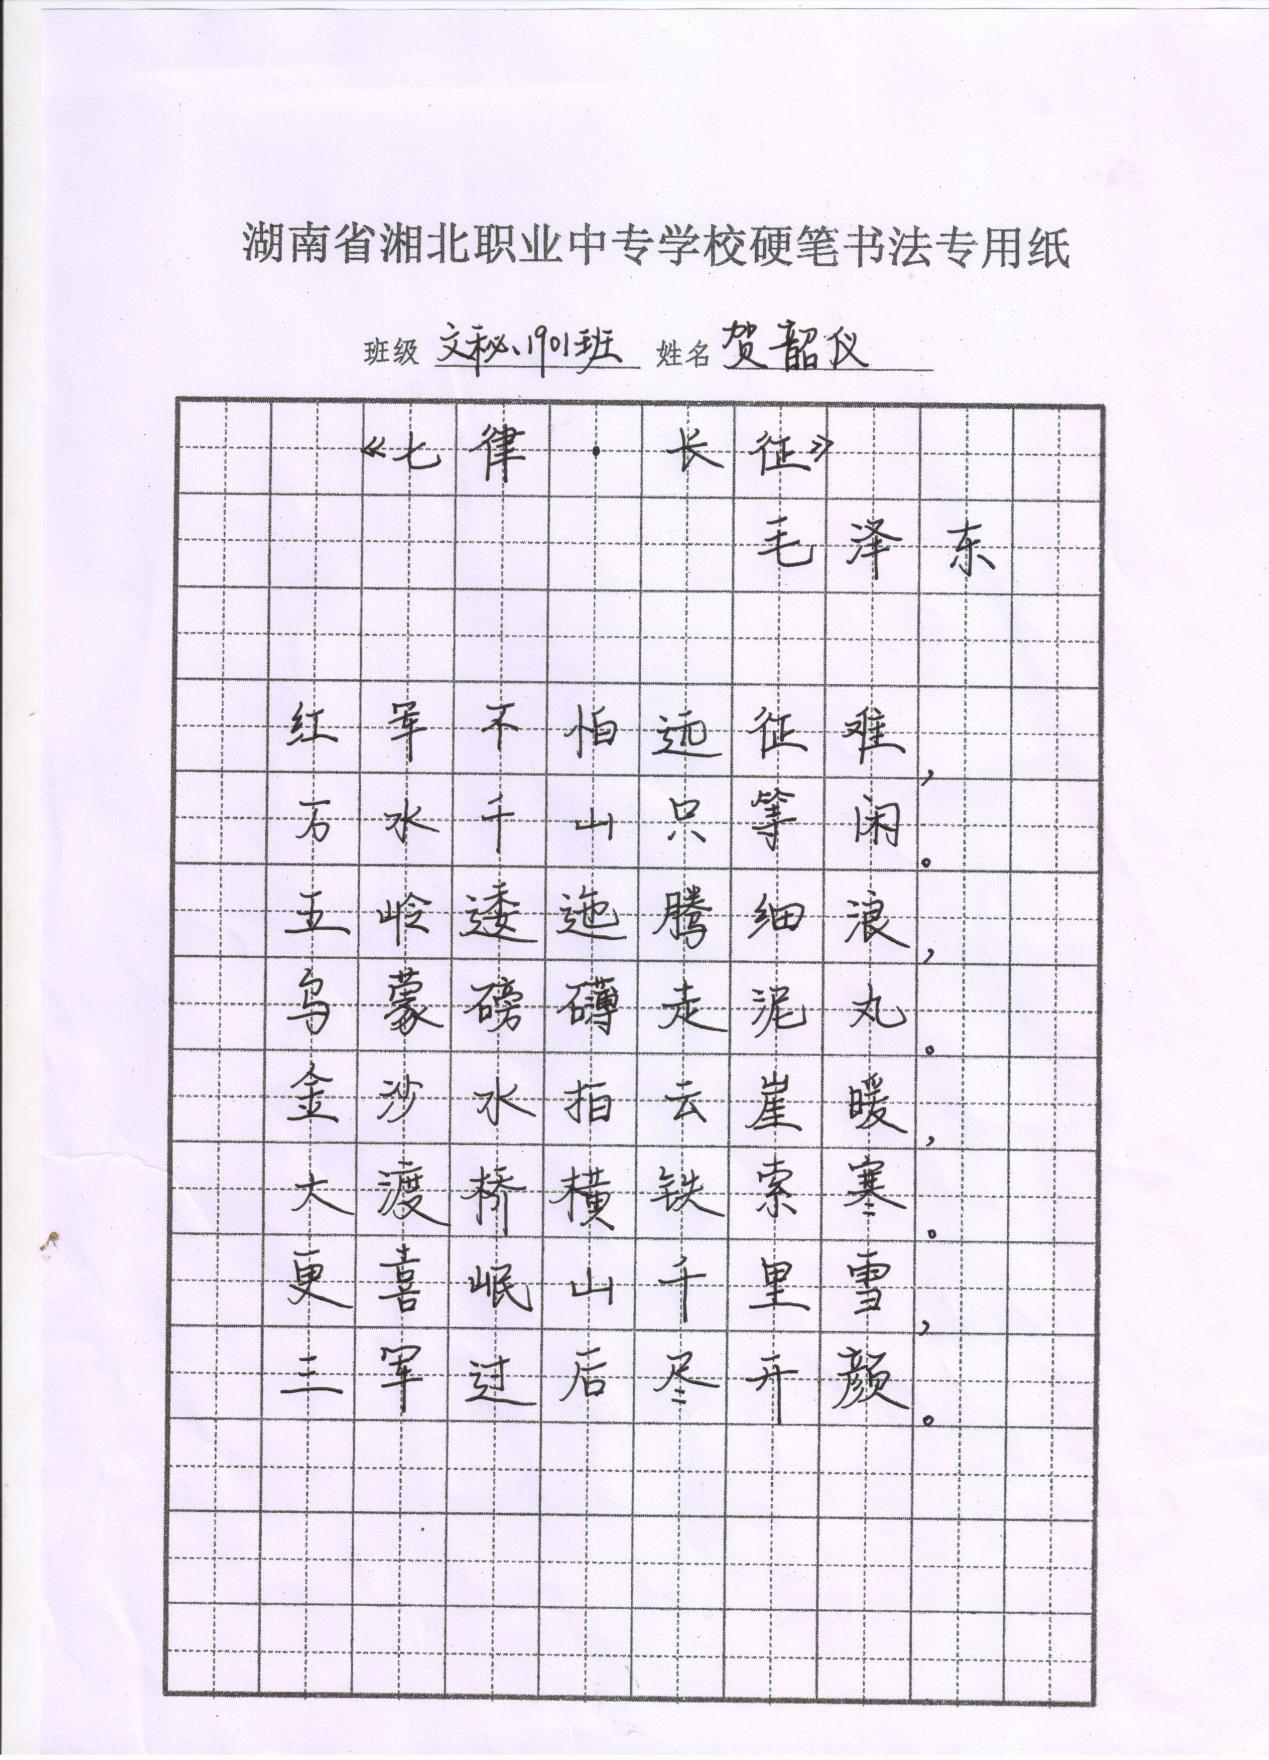 湖南省湘北职业中专学校硬笔书法专用纸
班级 文秘、1901班 姓名 贺韶仪
《七律·长征》
毛泽东
红军不怕远征难，
万水千山只等闲。
五岭逶迤腾细浪，
乌蒙磅礴走泥丸。
金沙水拍云崖暖，
大渡桥横铁索寒。
更喜岷山千里雪，
三军过后尽开颜。